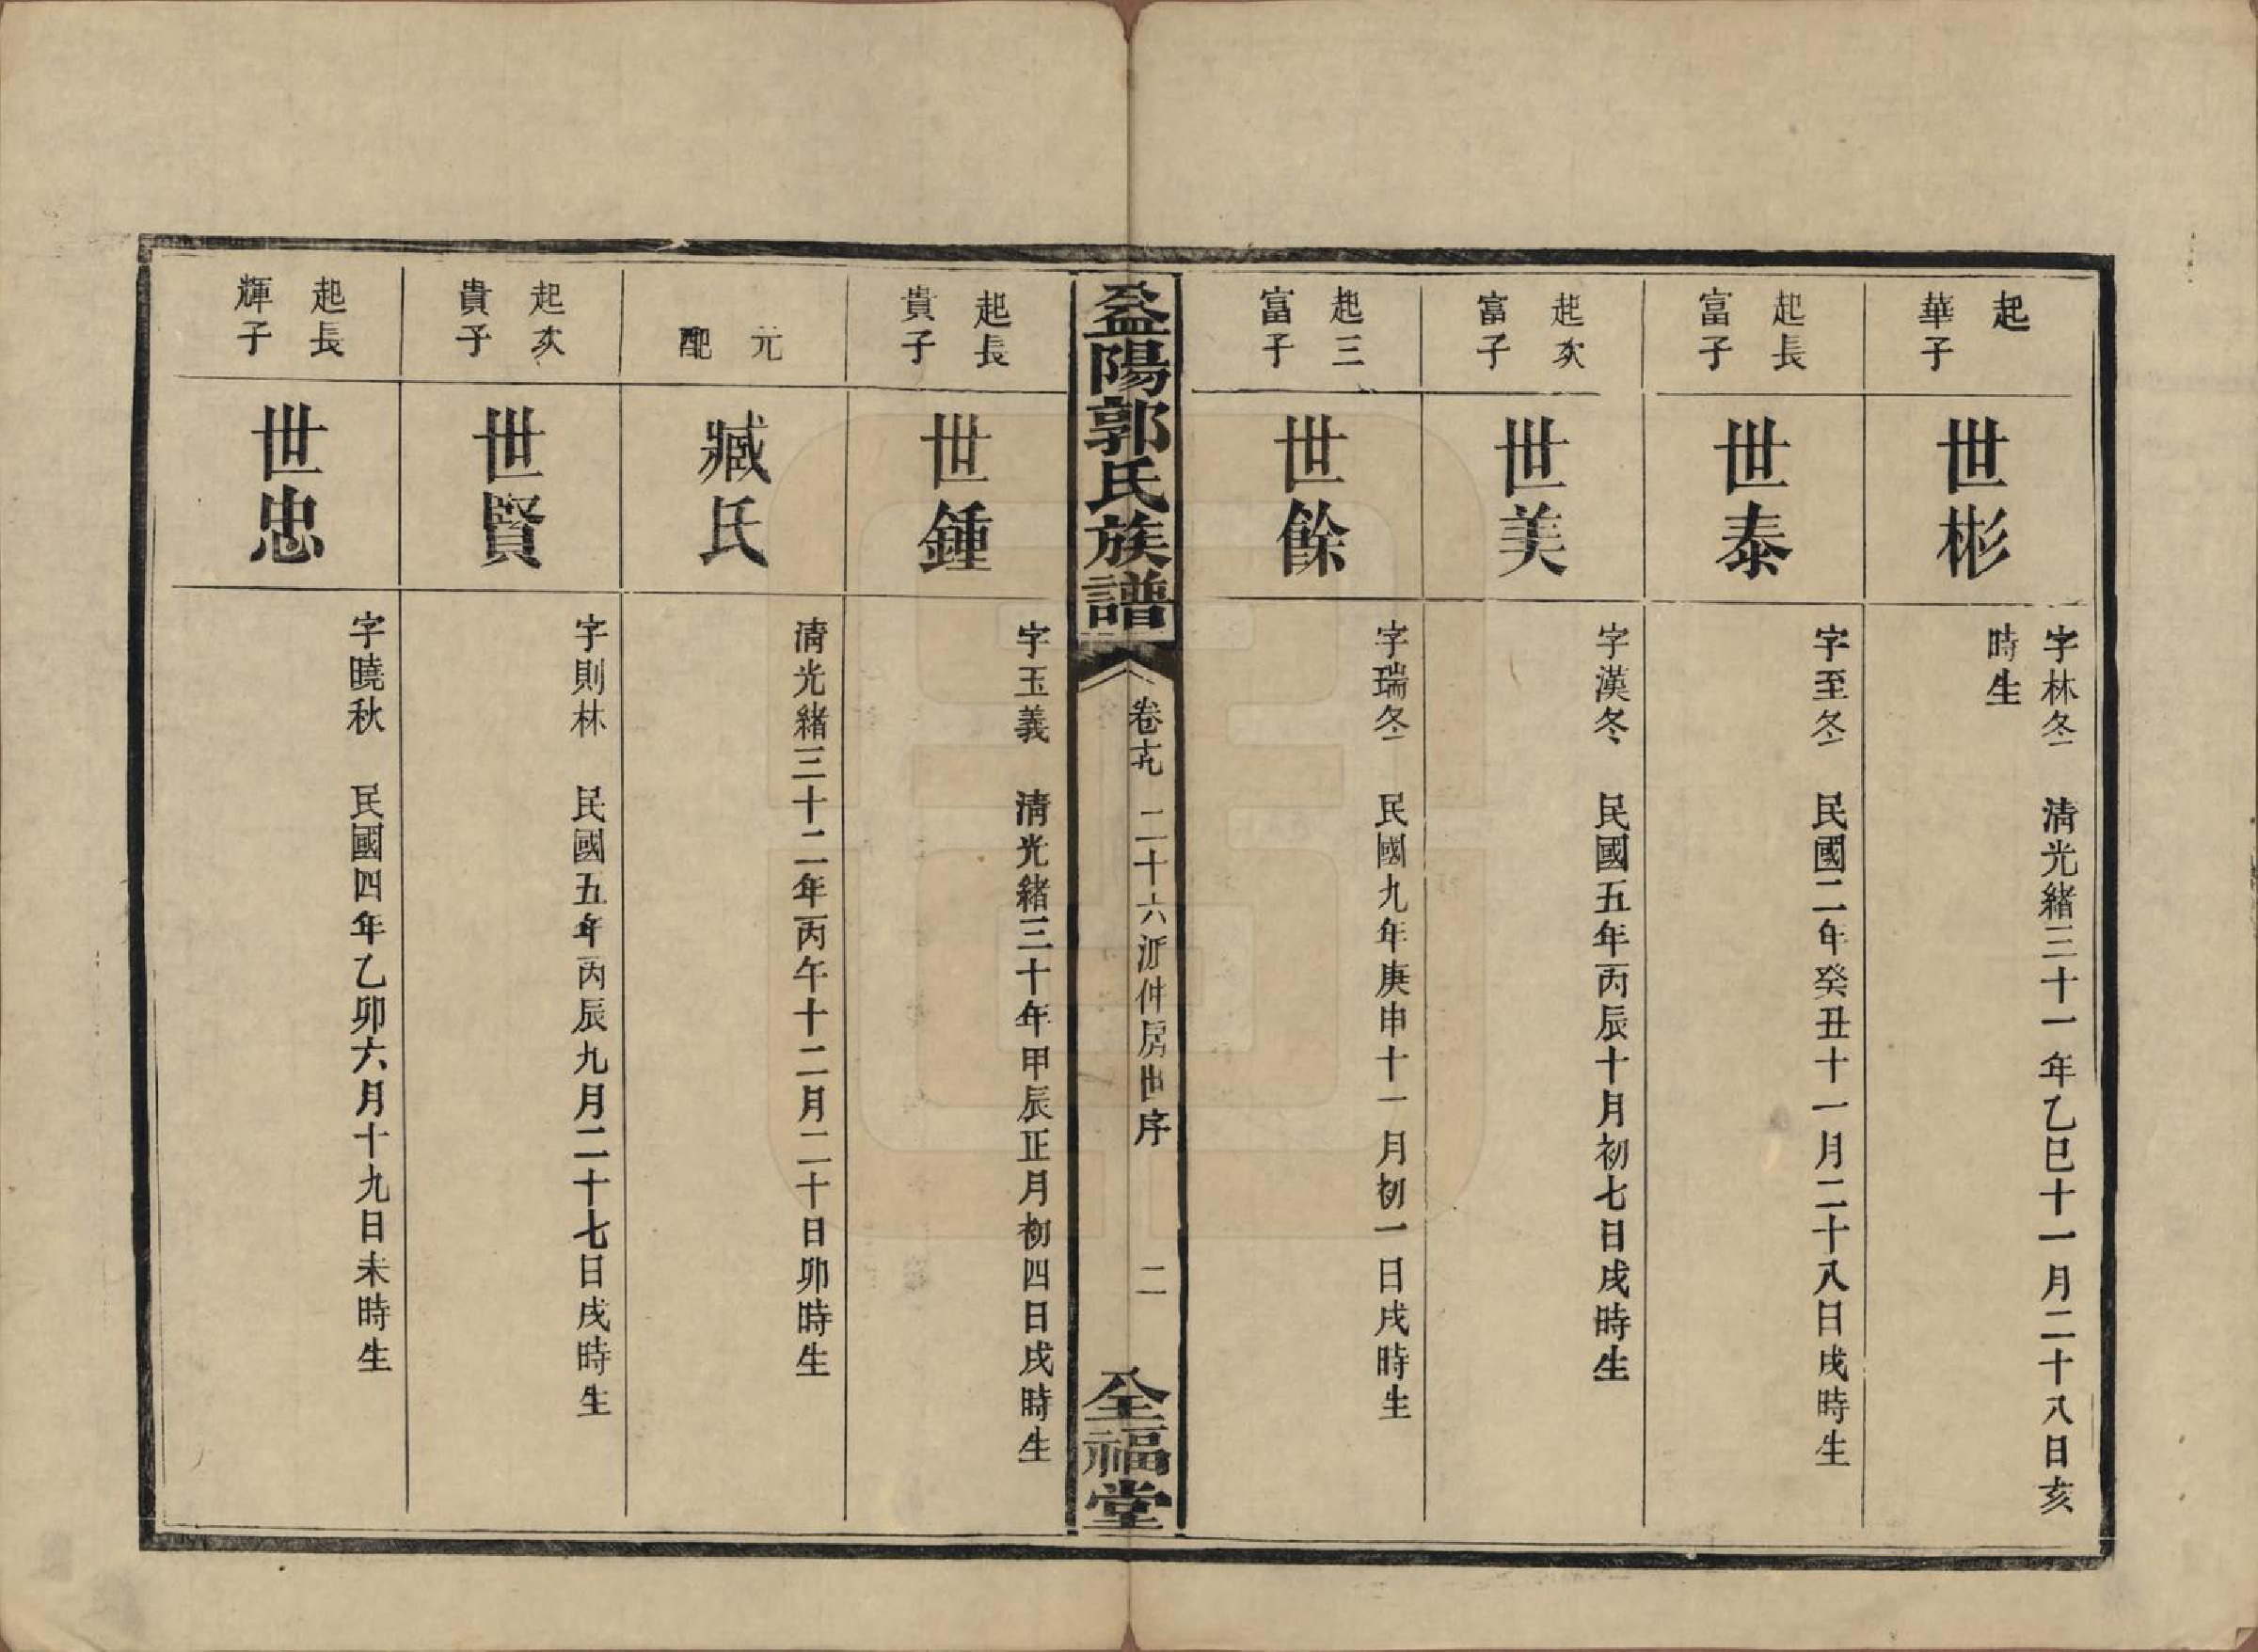 起
華子
世彬
字林冬　清光緒三十一年乙巳十一月二十八日亥
時生
起長
富子
世泰
字至冬　民國二年癸丑十一月二十八日戌時生
起次
富子
世美
字漢冬　民國五年丙辰十月初七日戌時生
起三
富子
世餘
字瑞冬　民國九年庚申十一月初一日戌時生
益陽郭氏族譜
卷十九　二十六派仲房世序　二
全福堂
起長
貴子
世鍾
字玉義　清光緒三十年甲辰正月初四日戌時生
元
配
臧氏
清光緒三十二年丙午十二月二十日卯時生
起次
貴子
世賢
字則林　民國五年丙辰九月二十七日戌時生
起長
輝子
世忠
字曉秋　民國四年乙卯六月十九日未時生